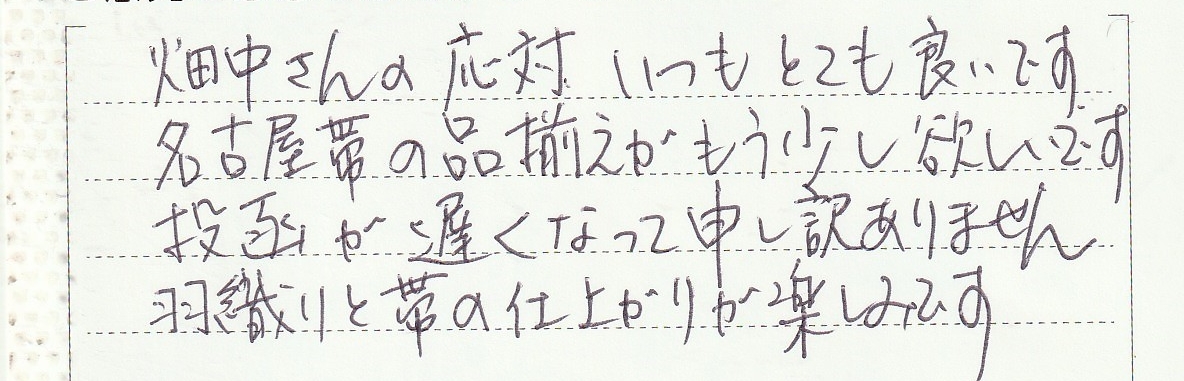 畑中さんの応対 いつもとても良いです
名古屋帯の品揃えがもう少し欲しいです
投函が遅くなって申し訳ありません
羽織りと帯の仕上がりが楽しみです